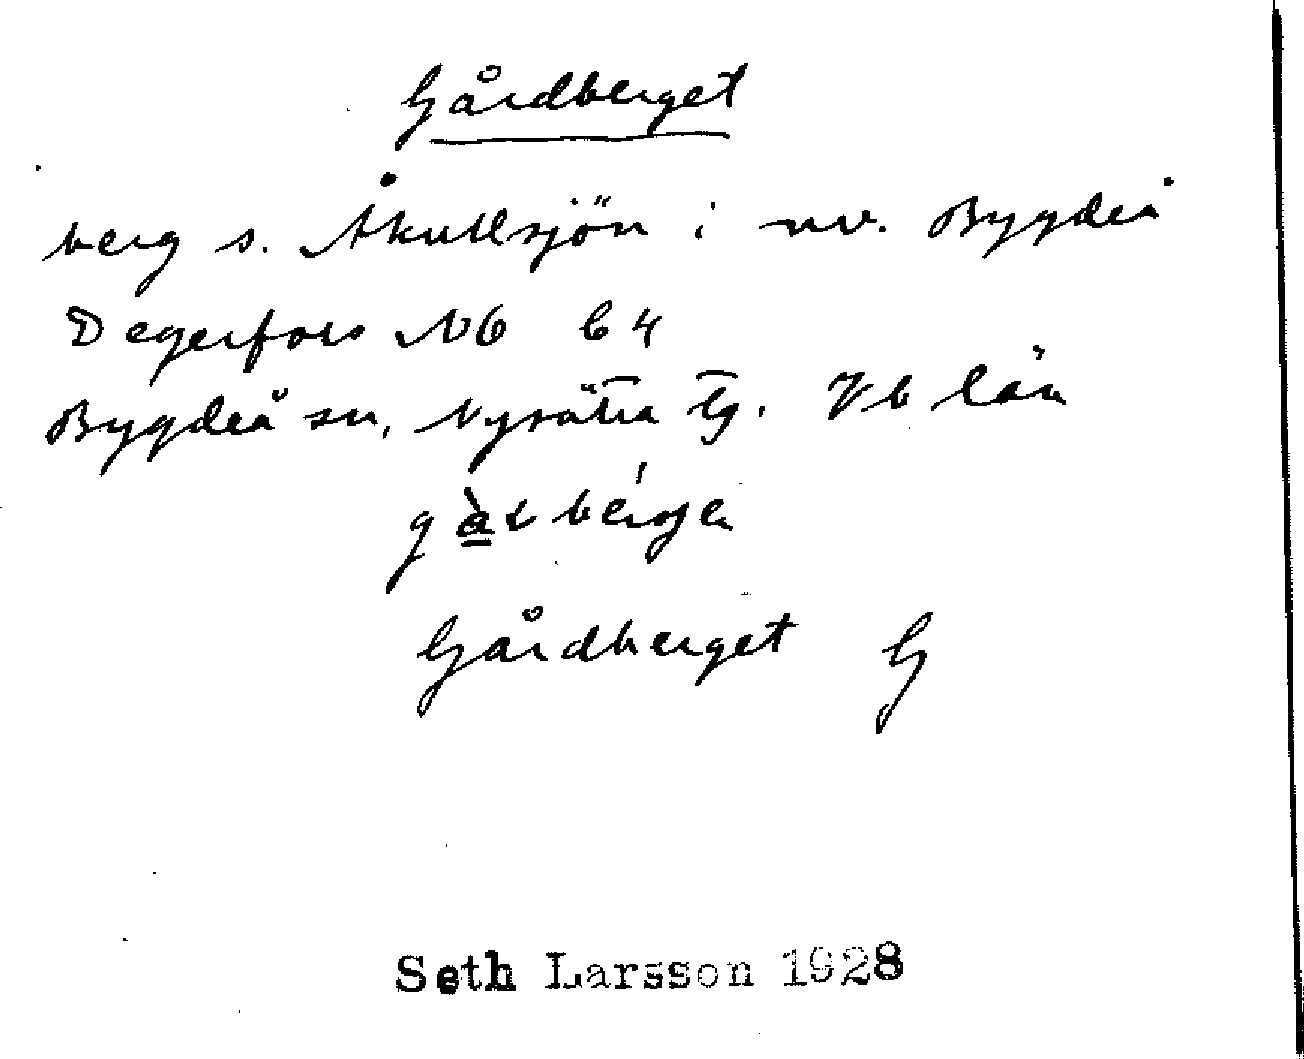 Gårdberget
berg s. Åkullsjön i nv. Bygdeå
Degerfors NO b 4
Bygdeå sn, Nysätra tg. Vb län
Gårdberget G
Seth Larsson 1928